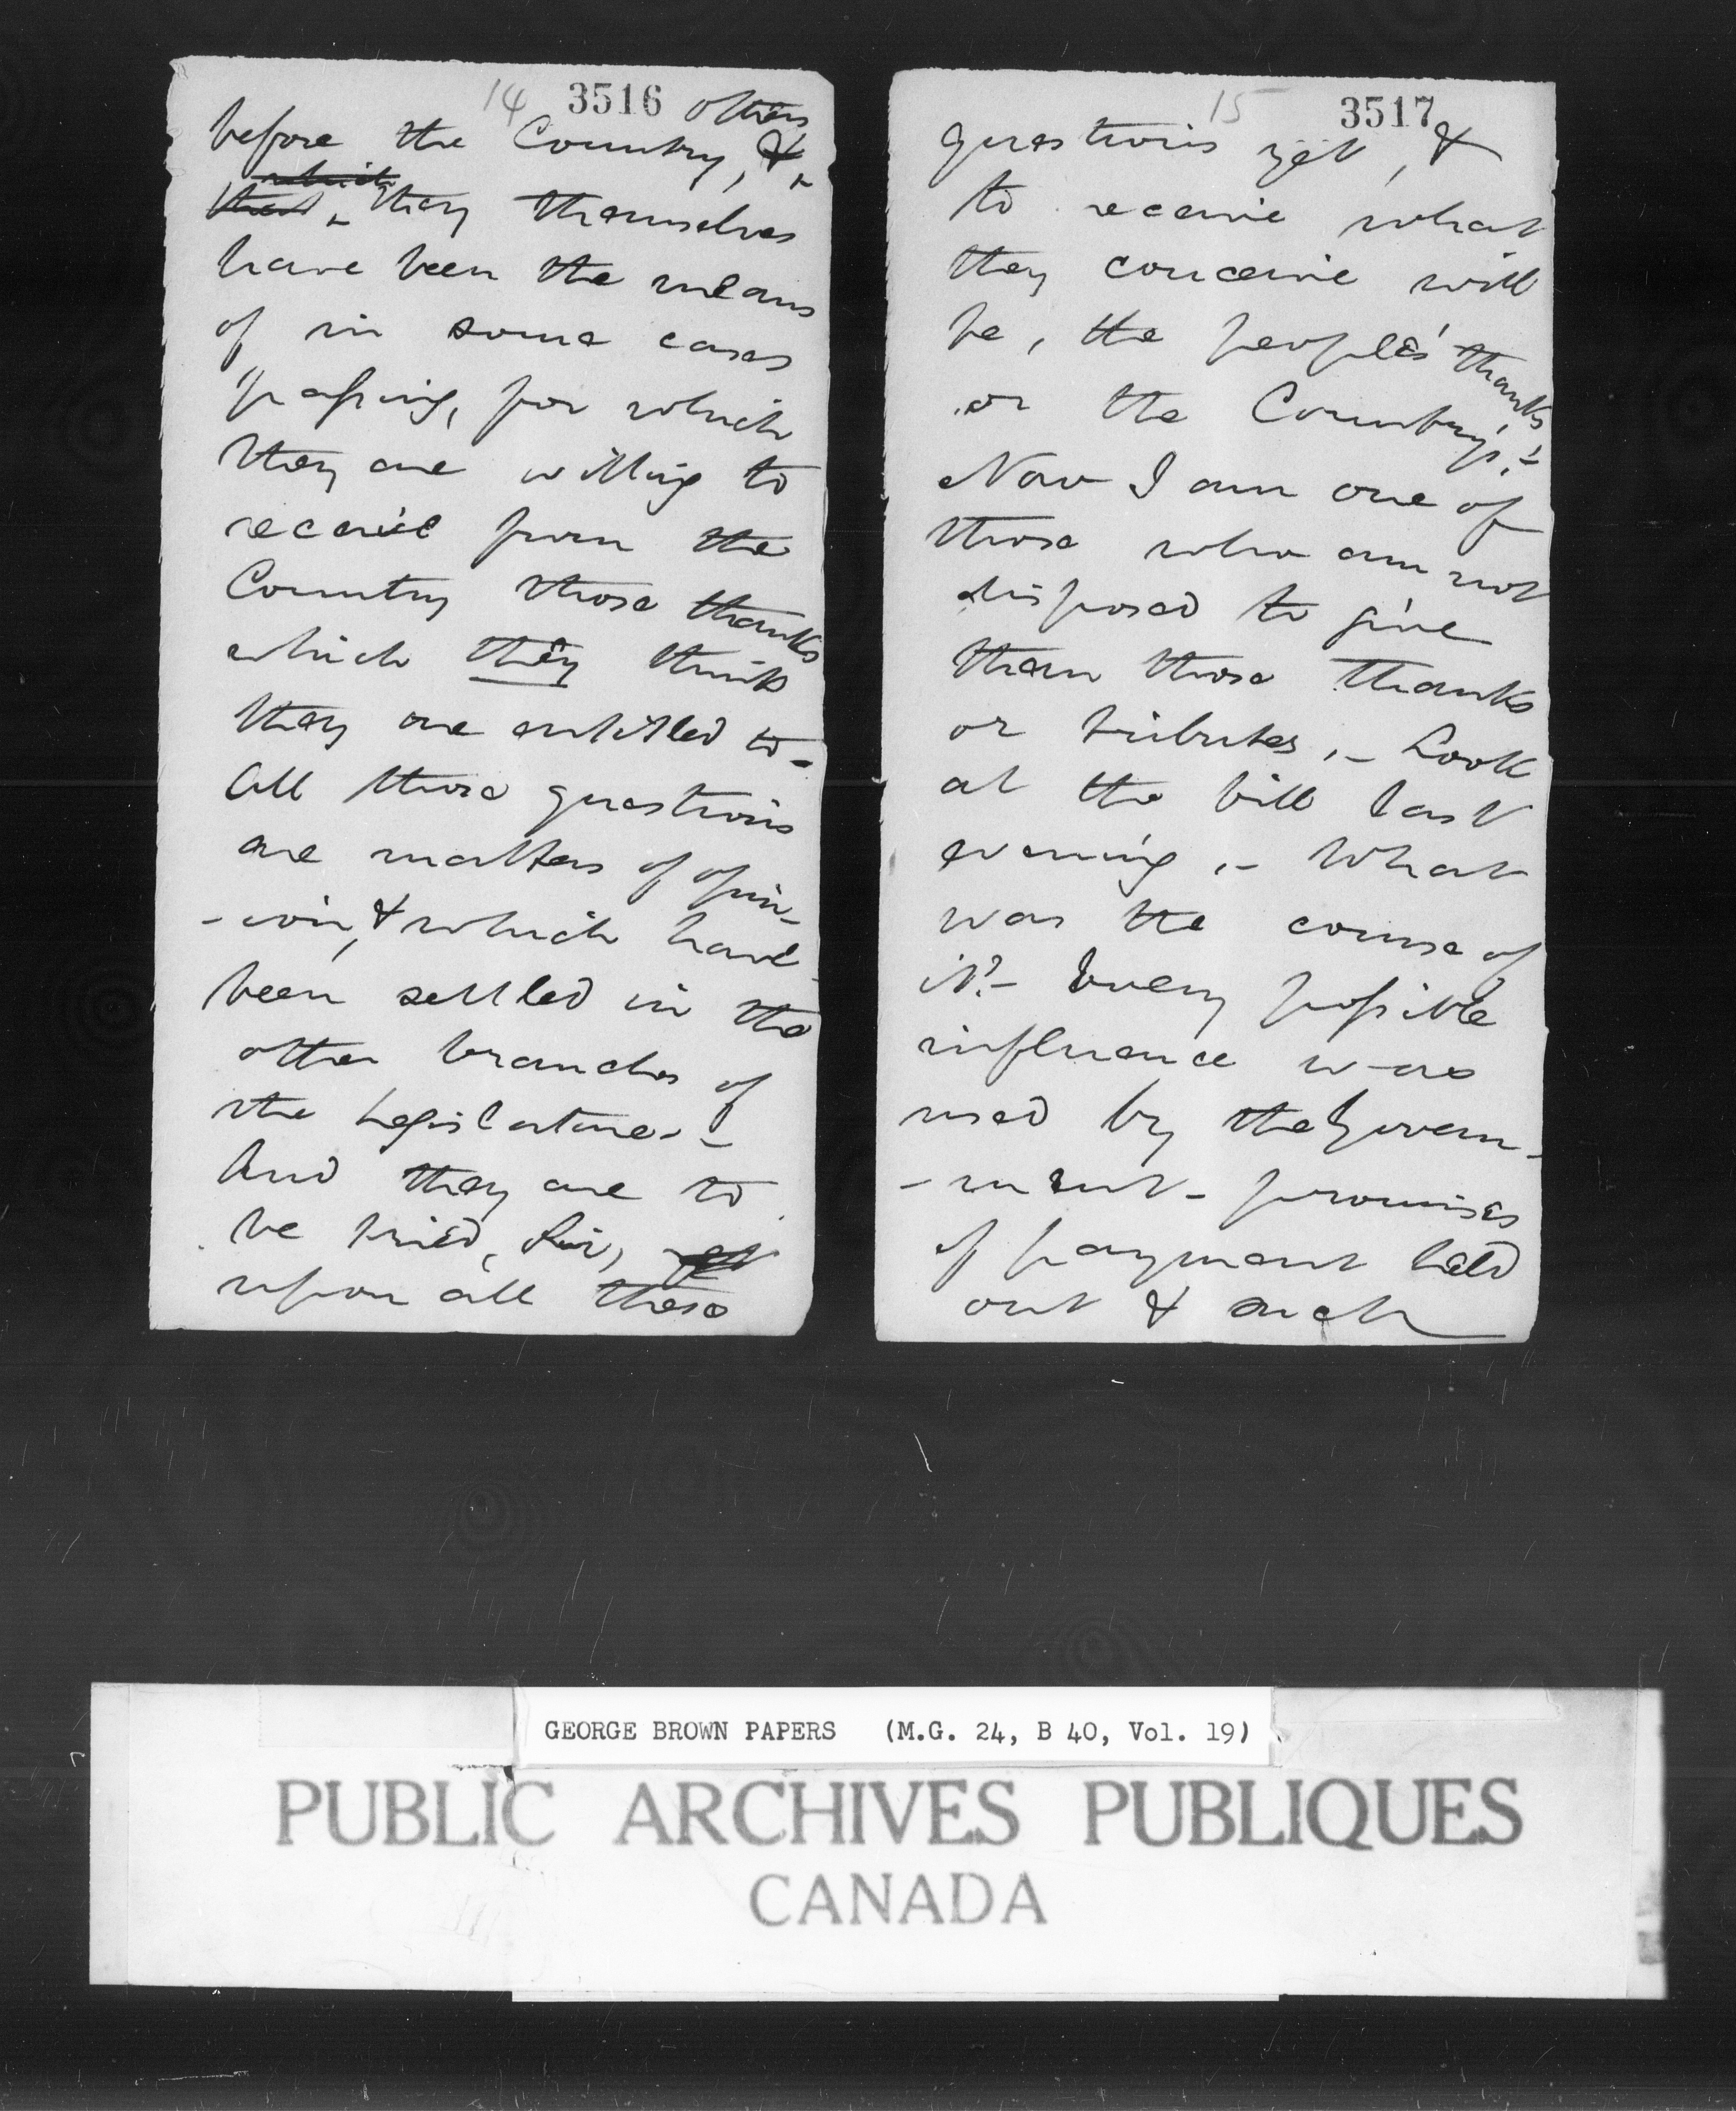 14 3516
others
before the Country, &
which
that, they themselves
have been the means
of in some cases
passing, for which
they are willing to
receive from the
Country those thanks
which they think
they are entitled to -
All those questions
are matters of opin-
-ion, & which have
been settled in the
other branches of
the Legislature. -
And they are to
be tried, Sir, yet
upon all these
15 3517
questions yet, &
to receive what
they conceive will
be, the people's thanks
or the Country's! -
Now I am one of
those who am not
disposed to give
them those thanks
or tributes, - Look
at the bill last
evening, - What
was the course of
it? - Every possible
influence was
used by the Govern-
-ment - promises
of payment held
out & such
GEORGE BROWN PAPERS (M.G. 24, B 40, Vol. 19)
PUBLIC ARCHIVES PUBLIQUES
CANADA